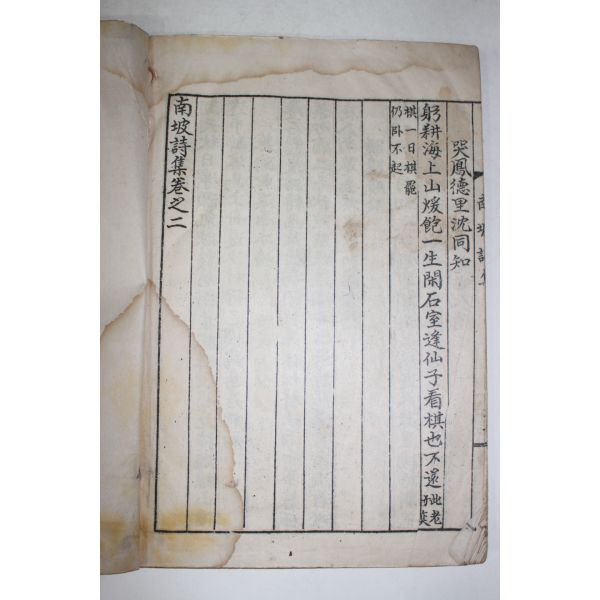 南坡詩集
哭鳳德里沈同知
躬耕海上山煖飽一生閑石室逢仙子看棋也不還此老
棋一日棋罷
仍卧不起
南坡詩集卷之二